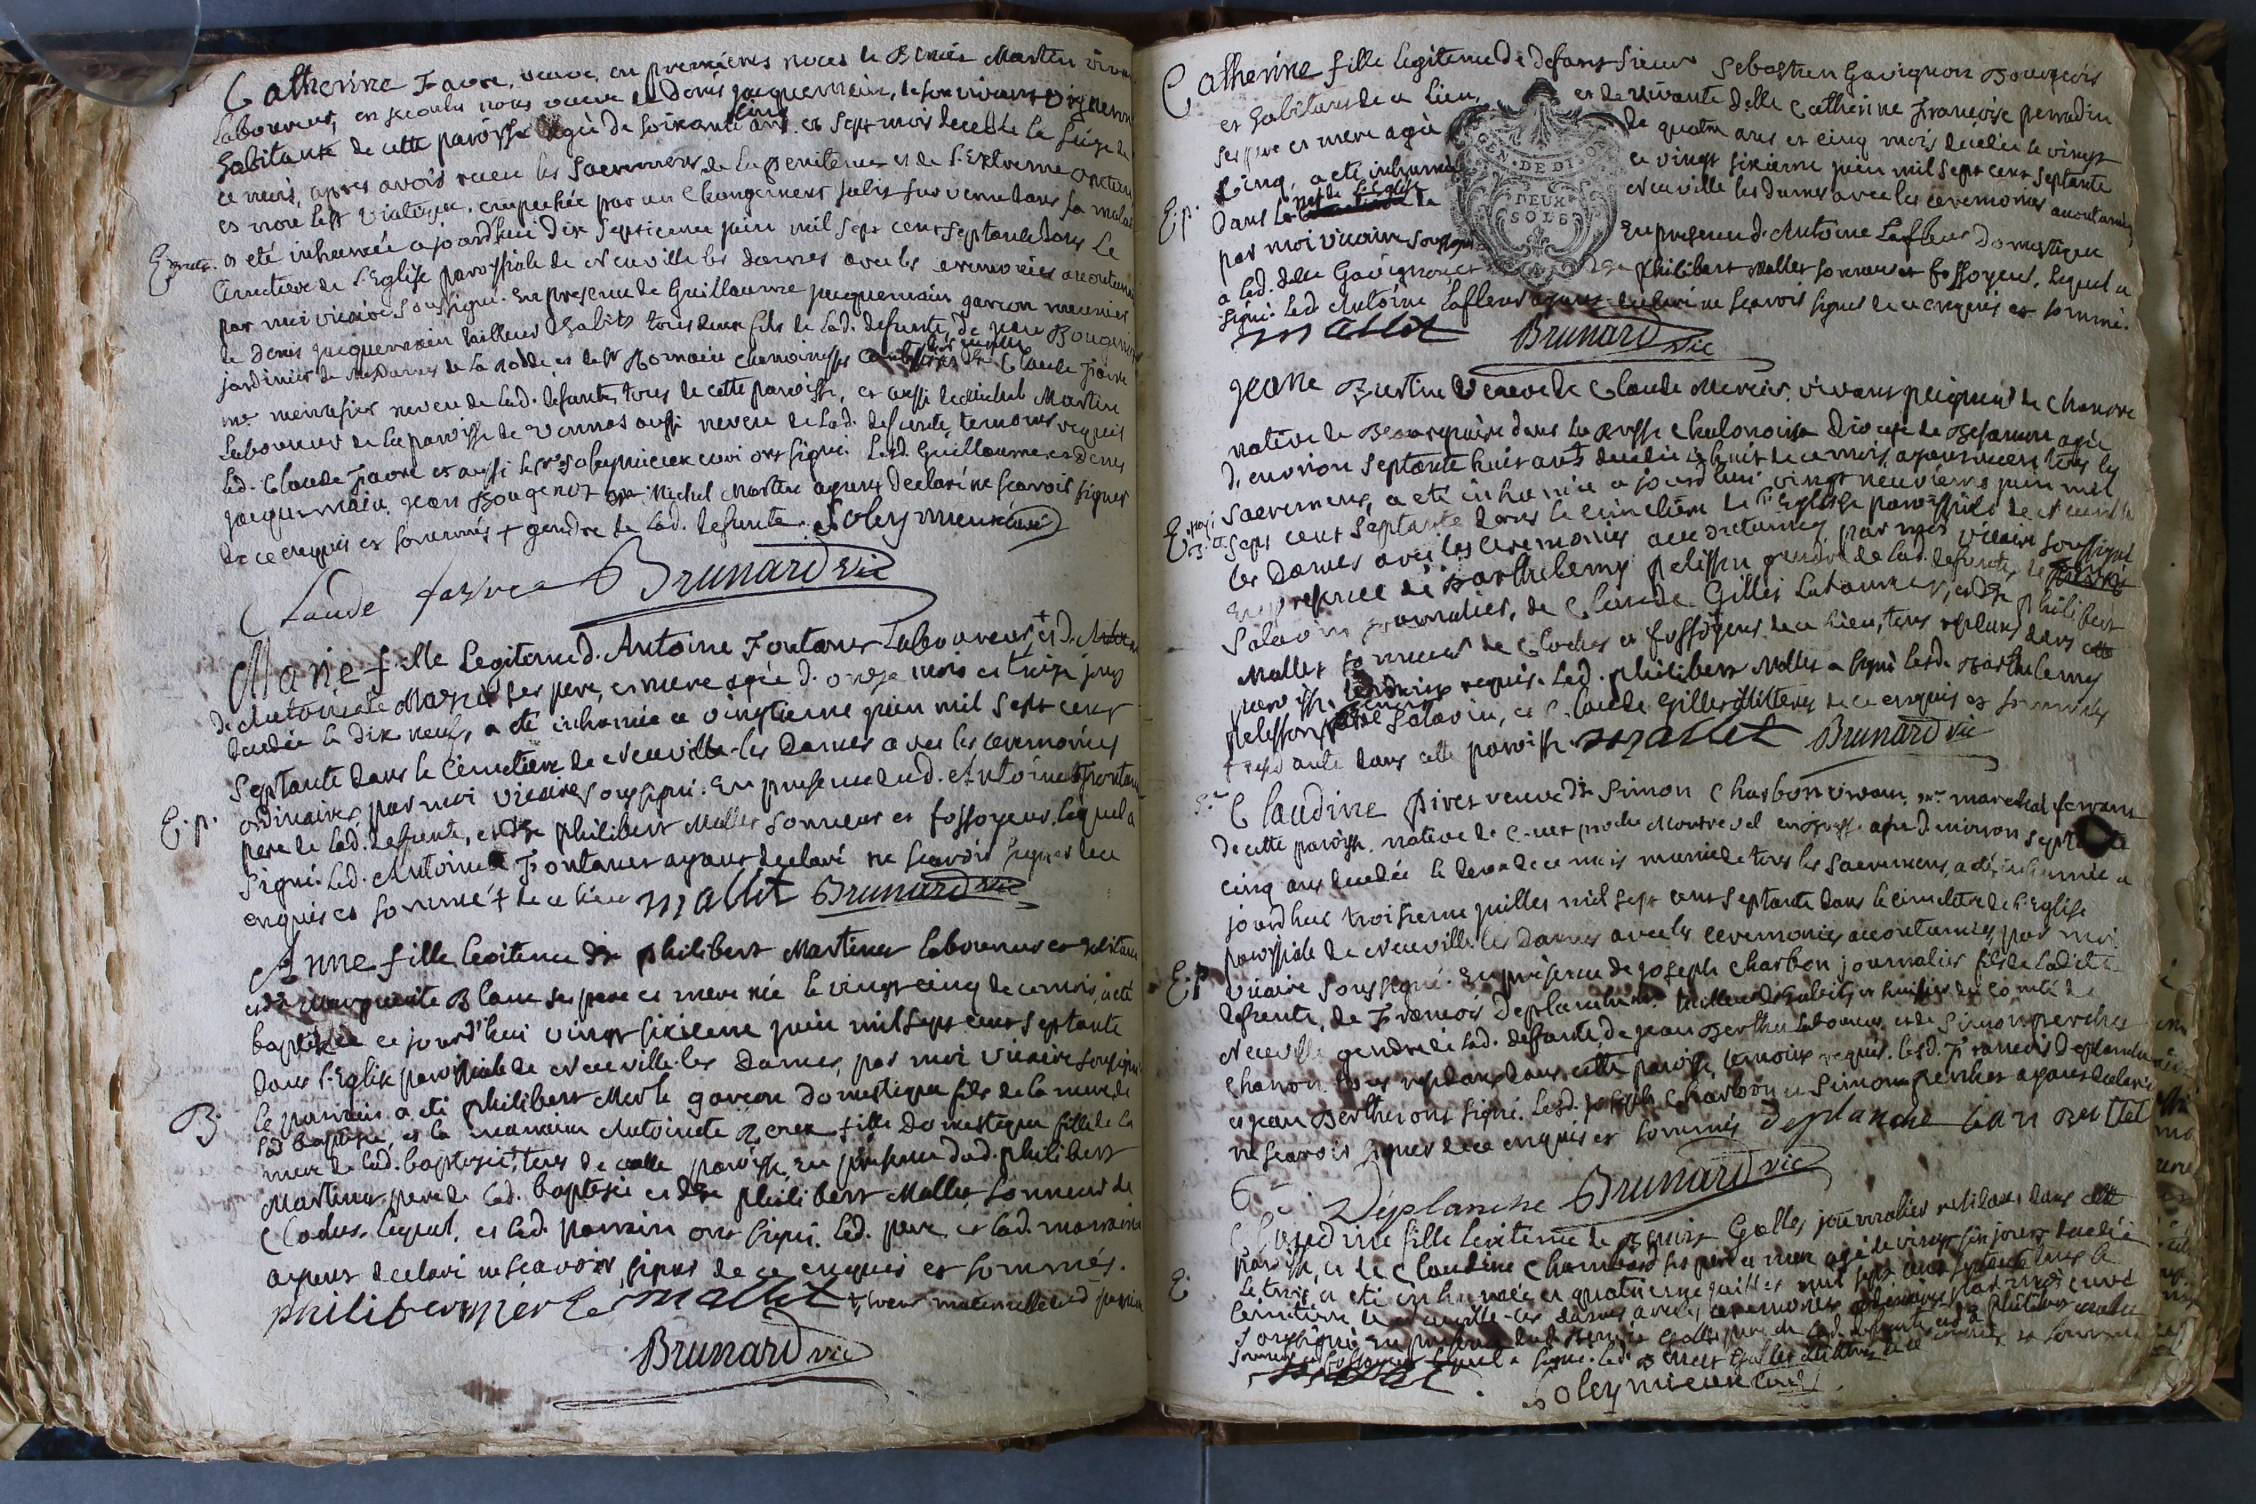 Catherine Favre, veuve en premieres noces de Benoit Martin vivant
laboureur, en secondes noces veuve de Denis jacquemain, de son vivant vigneron
habitante de cette paroisse agée de soixante cinq ans et sept mois decedée le seize de
ce mois, apres avoir receu les sacremens de la penitence et de l'Extreme onction
et non le St Viatique, empechée par un changement subit survenu dans sa maladie
Enterr. a eté inhumée ajourdhui dix septieme juin mil sept cent septante dans le
Cimetiere de l'Eglise paroissiale de Neuville les dames avec les ceremonies accoutumées
par moi vicaire soussigné. En presence de Guillaume jacquemain garçon meunier
de Denis jacquemain tailleur d'habits tous deux fils de lad. defunte, de jean Bougenot
jardinier de Mesdames de la Rodde, et de St Romain chanoinesses comtesses de Claude favre
me menuisier neveu de lad. defunte, tous de cette paroisse, et aussi de Michel Martin
laboureur de la paroisse de Vonnas aussi neveu de lad. defunte temoins requis
led. Claude Favre et aussi le Sr Soleymieux curé ont signé. Lesd. Guillaume et Denis
jacquemain, jean Bougenot et Michel Martin ayant declaré ne scavoir signer
de ce enquis et sommés + gendre de lad. defunte. Soleymieux curé
Claude favre Brunard vic
Marie fille legitime d. Antoine Fontanet Laboureur + et d.
d'Antoinette Mazuis ses pere et mere agée d. onze mois et treize jours
decedée le dix neuf, a eté inhumée ce vingtieme juin mil sept cent
septante dans le Cimetiere de Neuville-les Dames avec les ceremonies
ordinaires par moi vicaire soussigné. En presence dud. Antoine Fontanet
E. p. pere de lad. defunte, et de philibert Mallet sonneur et fossoyeur, lequel a
signé. led. Antoine Fontanet ayant declaré ne scavoir signer de ce
enquis et sommé + de ce lieu mallet Brunard vic
Anne fille legitime de philibert Martinet laboureur et habitant
et de marguerite Blanc ses pere et mere née le vingt cinq de ce mois, a eté
baptisée ce jourd'hui vingt sixieme juin mil sept cent septante
dans l'Eglise paroissiale de Neuville-les Dames, par moi vicaire soussigné
B. le parrain a eté philibert Merle garçon domestique fils de la mere de
lad. baptisée, et la marraine Antoinette fille domestique fille de la
mere de lad. baptisée, tous de cette paroisse, en presence dud. philibert
Martinet pere de lad. baptisée et de philibert Mallet sonneur de
Cloches. Lequel, et led. parrain ont signé. led. pere et lad. marraine
ayant declaré ne scavoir signer de ce enquis et sommés.
philibert merle mallet + frere maternelle dud parrain
Brunard vic
Catherine fille legitime de defunt sieur Sebastien Gavignon Bourgeois
et habitant de ce lieu, et de vivante delle Catherine Françoise perradin
ses pere et mere agée de quatre ans et cinq mois decedée le vingt
cinq, a eté inhumée ce vingt sixieme juin mil sept cent septante
E. p. Dans la nef de l'Eglise de Neuville les dames avec les ceremonies accoutumées
par moi vicaire soussigné En presence d. Antoine Lafleur Domestique
a lad. delle Gavignon et de philibert Mallet sonneur et fossoyeur, lequel a
signé. led. Antoine Lafleur ayant declaré ne scavoir signer de ce enquis et sommé.
mallet Brunard vic
GEN. DE DIJON
DEUX
SOLS
Jeane Burtin veuve de Claude Mercier, vivant peigneur de chanvre
native de dans la Bresse Chalonoise Diocese de Besançon agée
d'environ septante huit ans decedée le huit de ce mois, ayant receu tous les
sacremens, a eté inhumée a jourdhui vingt neuvieme juin mil
sept cent septante dans le cimetiere de l'Eglise paroissiale de Neuville
les Dames avec les ceremonies accoutumées par moi vicaire soussigné
En presence de Barthelemy pelisson gendre de lad. defunte, de
Salavin journalier, de Claude Gilles et de philibert
Mallet sonneur de Cloches et fossoyeur de ce lieu, tous residans dans cette
paroisse, temoins requis. Led. philibert Mallet a signé lesd. Barthelemy
pelisson Salavin, et Claude Gilles illitterés de ce enquis et sommés
+ residante dans cette paroisse mallet Brunard vic
Claudine piret veuve de Simon Charbon vivant me marechal ferrant
de cette paroisse native de Cuet proche Montrevel en Bresse agée d'environ septante
cinq ans decedée le deux de ce mois munie de tous les sacremens, a eté inhumée a
jourdhui troisieme juillet mil sept cent septante dans le cimetiere de l'Eglise
paroissiale de Neuville les Dames avec les ceremonies accoutumées, par moi
E. p. vicaire soussigné. En presence de joseph Charbon journalier fils de ladite
defunte, de François Deplanche tailleur d'habits, et huissier du Comté de
Neuville gendre de lad. defunte, de jean Berthet Laboureur et de Simon perchet
charon tous residans dans cette paroisse temoins requis. lesd. François Deplanche
et jean Berthet ont signé. Lesd. joseph Charbon et Simon perchet ayant declaré
ne scavoir signer de ce enquis et sommés Deplanche ian bertet
Déplanche Brunard vic
Claudine fille legitime de Benoit Gallet journalier residant dans cette
paroisse, et de Claudine Chambard ses pere et mere agée de vingt six jours decedée
E. le trois, a eté inhumée ce quatrieme juillet mil sept cent septante dans le
Cimetiere de Neuville-les dames avec les ceremonies ordinaires par moi curé
soussigné En presence dud. Benoit Gallet pere de lad. defunte et de philibert mallet
sonneur et fossoyeur lequel a signé. led. Benoit Gallet illitteré de ce enquis et sommé
mallet. Soleymieux curé